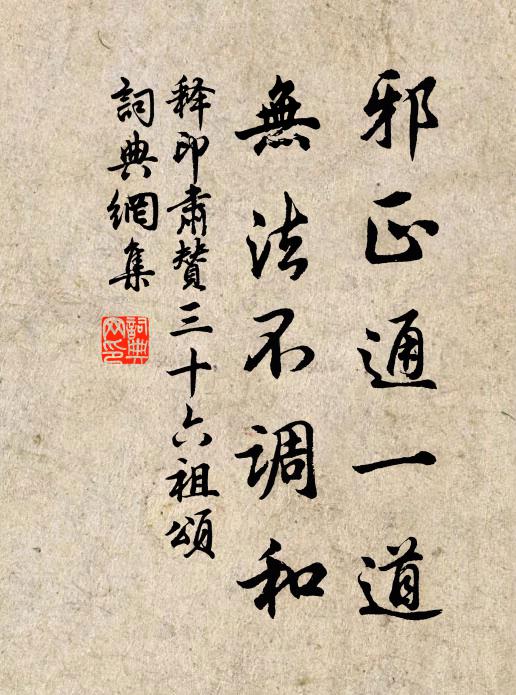 邪正通一道
無法不調和
释印肅贊三十六祖頌
詞典網集
詞典
网印